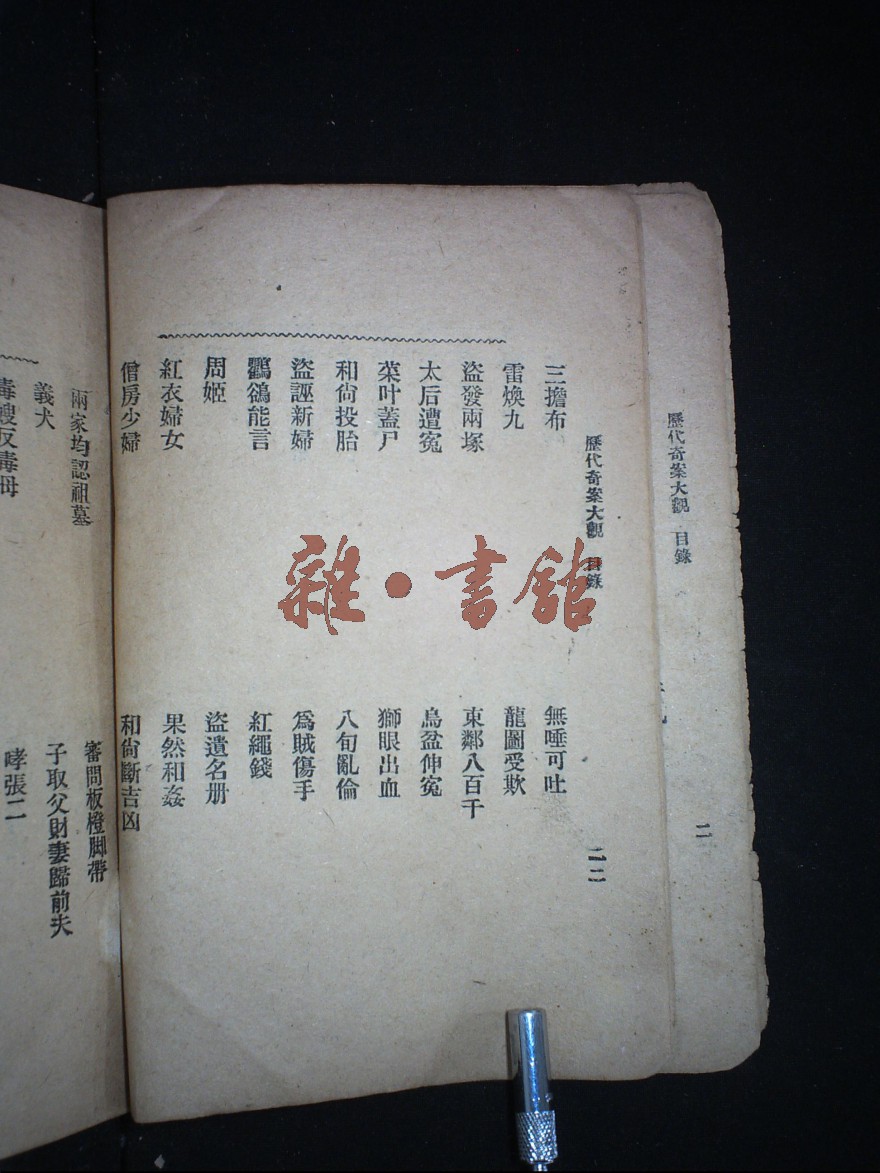 歷代奇案大觀　目錄
二
歷代奇案大觀　目錄
二二
三擔布
無唾可吐
雷煥九
龍圖受欺
盜發兩塚
東鄰八百千
太后遭寃
烏盆伸寃
菜叶蓋尸
獅眼出血
和尙投胎
八旬亂倫
盜誣新婦
爲賊傷手
鸜鵒能言
紅繩錢
周姬
盜遺名册
紅衣婦女
果然和姦
僧房少婦
和尙斷吉凶
兩家均認祖墓
審問板櫈脚帶
義犬
子取父財妻歸前夫
毒嫂反毒母
哮張二
雜·書館